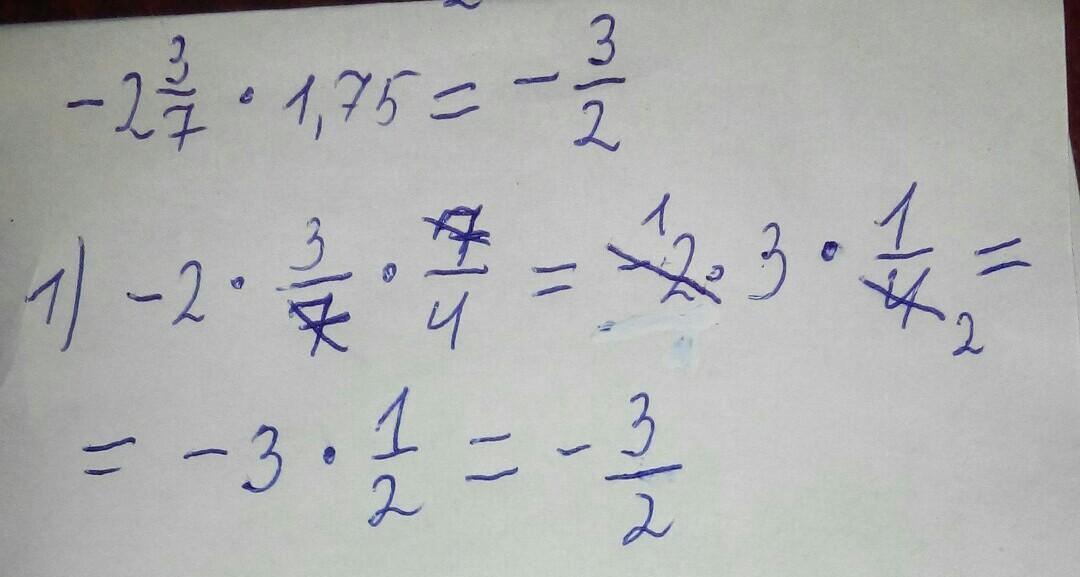 -2 3/7 · 1,75 = - 3/2
1) -2 · 3/7 · 7/4 = 1 -2 · 3 · 1/4 2 =
= -3 · 1/2 = - 3/2